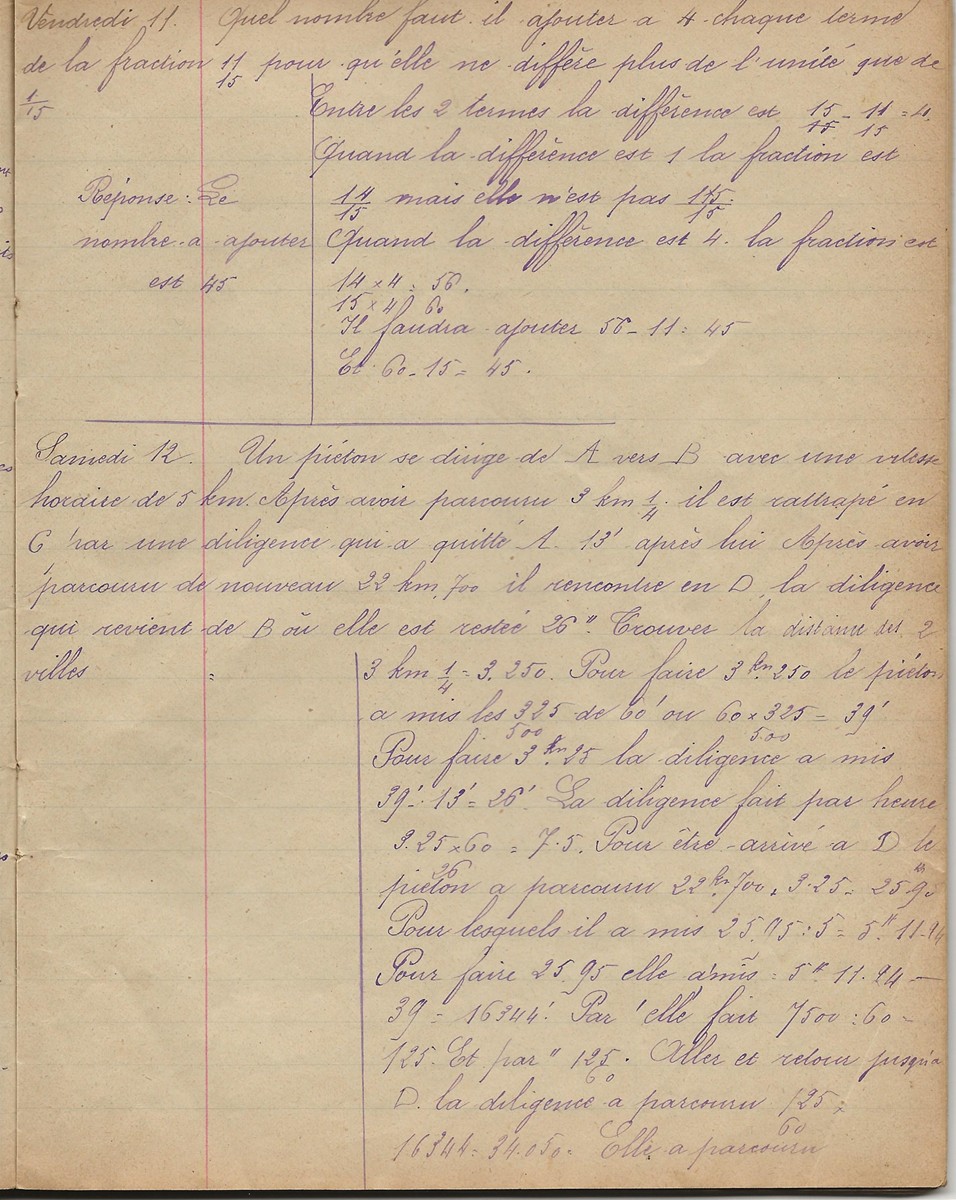 Vendredi 11. Quel nombre faut-il ajouter a 4 chaque terme
de la fraction 11/15 pour qu'élle ne diffère plus de l'unité que de
1/15
Entre les 2 termes la différence est 15/15 - 11/15 = 4.
Quand la différence est 1 la fraction est
14/15 mais elle n'est pas 15/15.
Réponse : Le
nombre a ajouter
est 45
Quand la différence est 4. la fraction est
14 x 4 = 56.
15 x 4 60
Il faudra ajouter 56 - 11 = 45
Et 60 - 15 = 45.
Samedi 12. Un piéton se dirige de A vers B avec une vitesse
horaire de 5 km. Après avoir parcouru 3 km 1/4. il est rattrapé en
C par une diligence qui a quitté A 13' après lui Après avoir
parcouru de nouveau 22 km,700 il rencontre en D, la diligence
qui revient de B où elle est restée 26". Trouver la distance des 2
villes =
3 km 1/4 = 3.250. Pour faire 3 km.250 le piéton
a mis les 325/500 de 60' ou 60 x 325/500 = 39'
Pour faire 3 km.25 la diligence a mis
39' - 13' = 26'. La diligence fait par heure
3.25 x 60/26 = 7.5. Pour être arrivé a D le
piéton a parcouru 22 km.700 + 3.25 = 25.95
Pour lesquels il a mis 25.95 : 5 = 5H. 11.
Pour faire 25.95 elle a mis = 5H 11.24 -
39 = 16344'. Par ' elle fait 7500 : 60 =
125. Et par " 125/60. Aller et retour jusqu'a
D. la diligence a parcouru 125/60
16344 = 34.050. Elle a parcouru